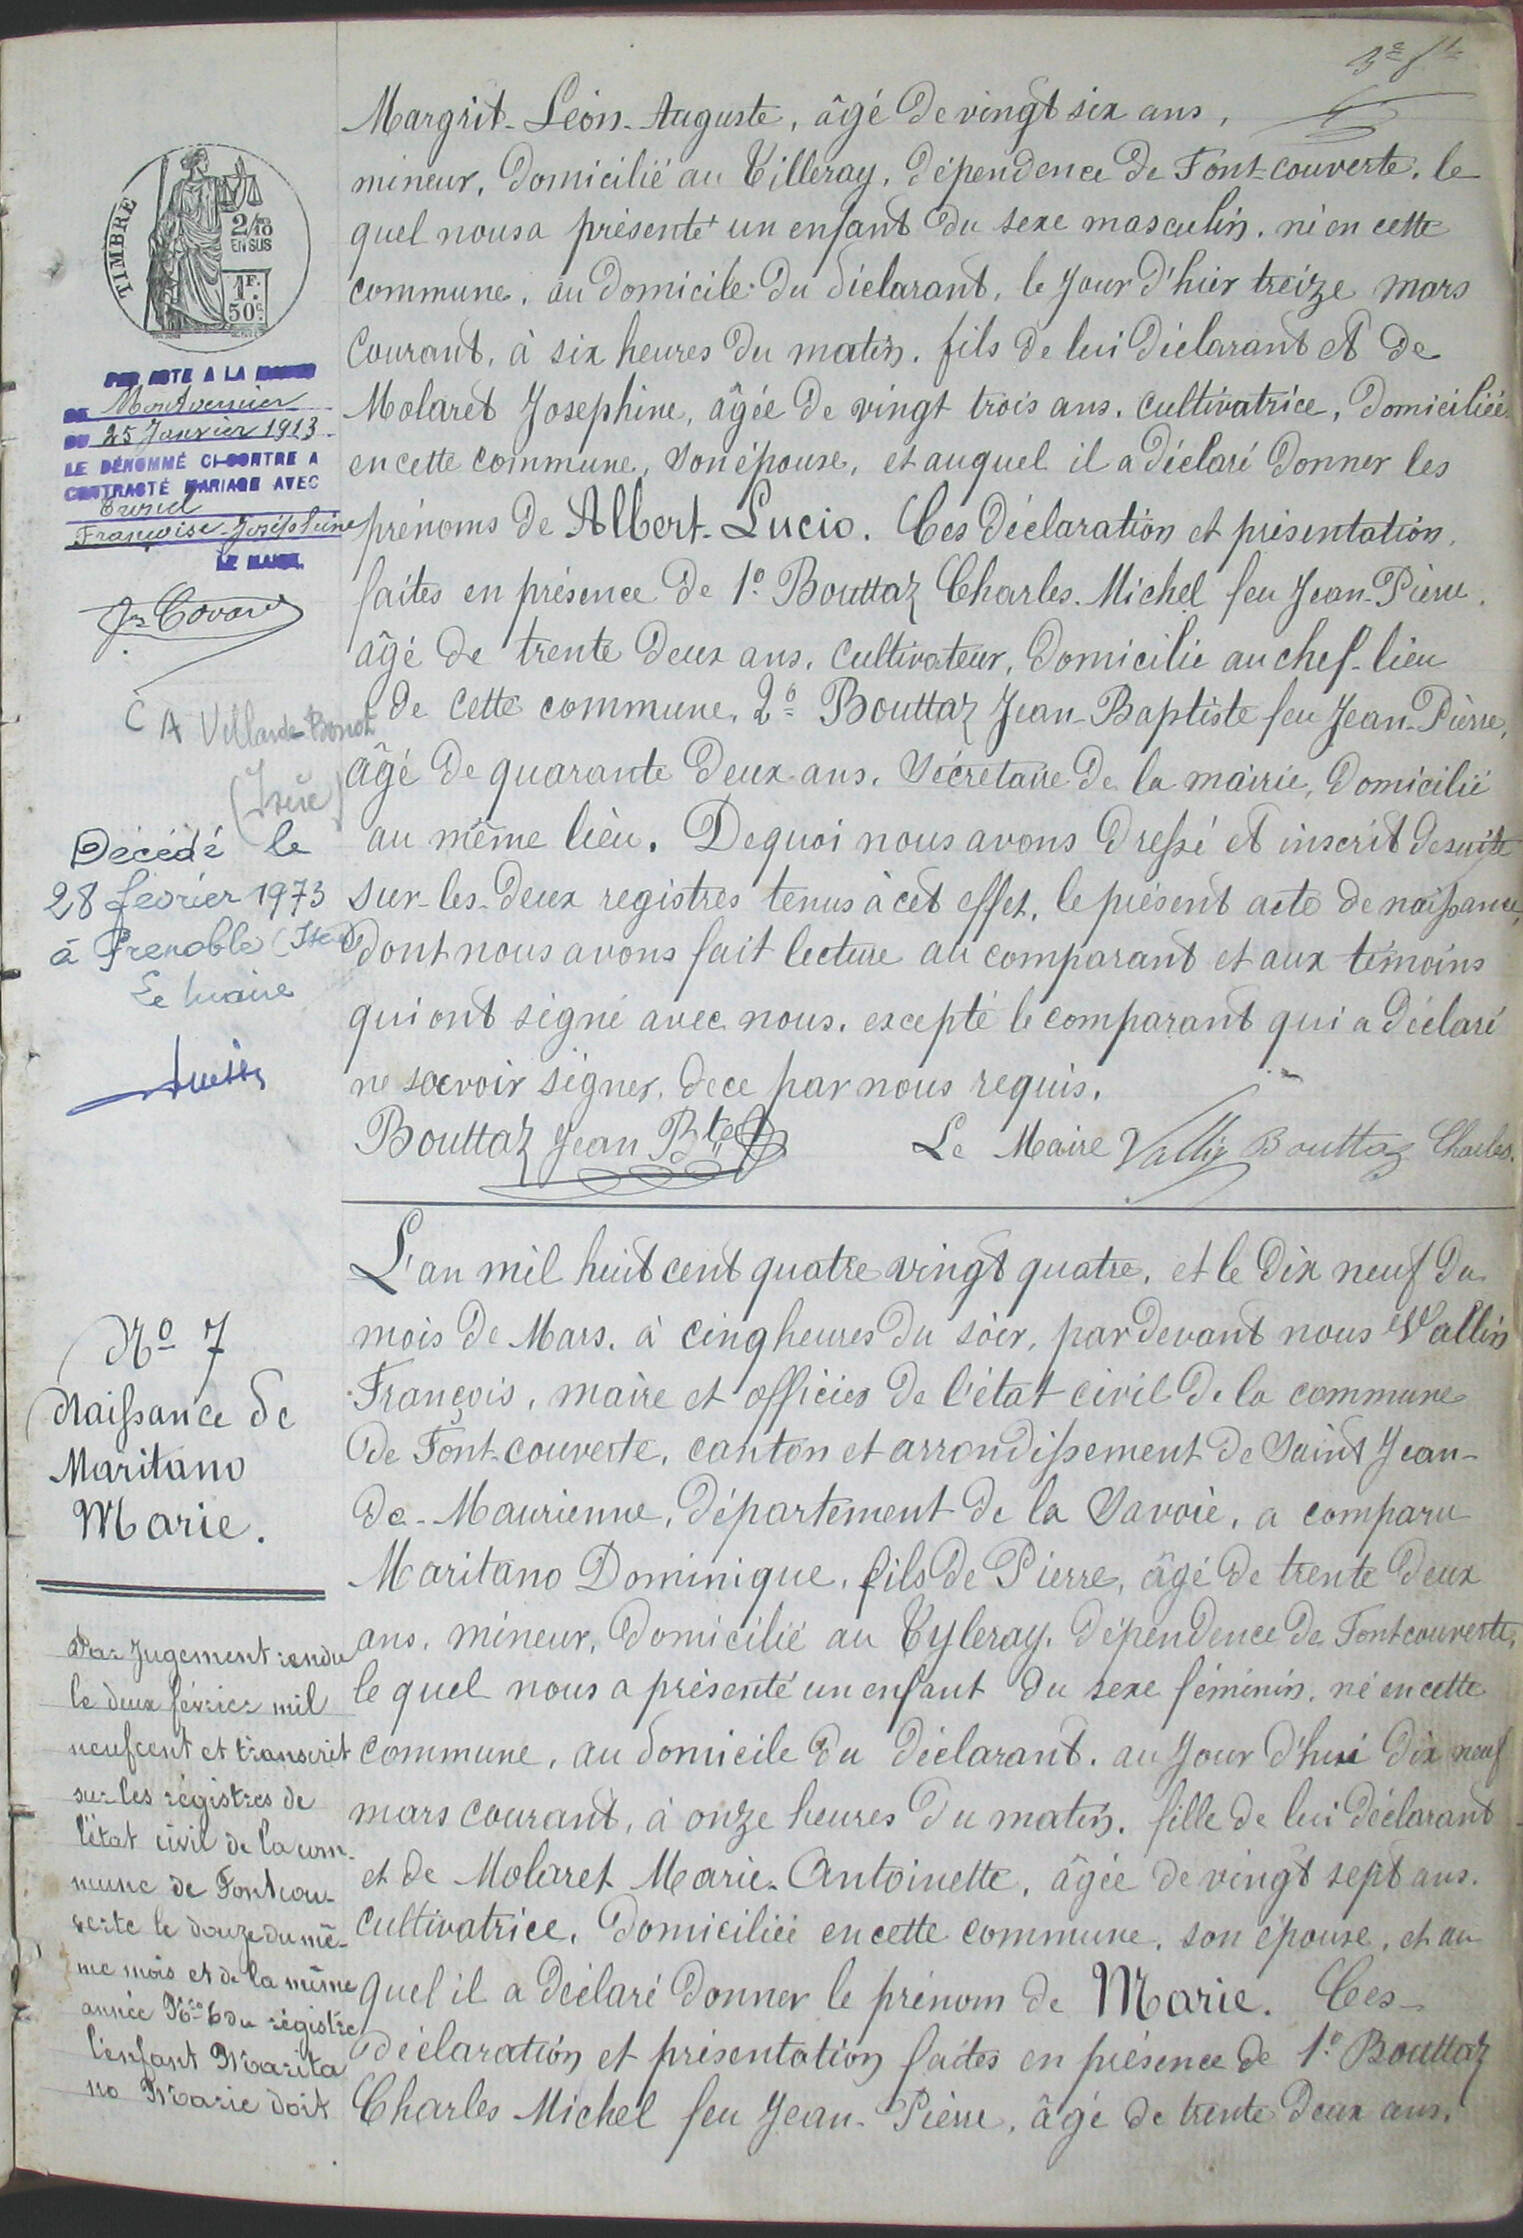 3e ft
Margrit-Léon-Auguste, âgé de vingt six ans,
mineur, domicilié au Tilleray, dépendence de Font-couverte, le
quel nous a présenté un enfant du sexe masculin, né en cette
commune, au domicile du déclarant, le jour d'hier treize mars
courant, à six heures du matin, fils de lui déclarant et de
Molaret Josephine, âgée de vingt trois ans, cultivatrice, domiciliée
en cette commune, son épouse, et auquel il a déclaré donner les
prénoms de Albert-Lucio. Ces déclaration et présentation,
faites en présence de 1º Bouttaz Charles-Michel feu Jean-Pierre,
âgé de trente deux ans, cultivateur, domicilié au chef-lieu
de cette commune, 2º Bouttaz Jean-Baptiste feu Jean-Pierre,
âgé de quarante deux ans, sécrétaire de la mairie, domicilié
au même lieu. De quoi nous avons dressé et inscrit de suite
sur les deux registres tenus à cet effet, le présent acte de naissance,
dont nous avons fait lecture au comparant et aux témoins
qui ont signé avec nous, excepté le comparant qui a déclaré
ne savoir signer, de ce par nous requis.
Bouttaz Jean Bte Le Maire Vallin Bouttaz Charles.
TIMBRE
2/10
EN SUS
1F.
50c.
PAR ACTE A LA MAIRIE
DE Montvernier
DU 25 Janvier 1913
LE DÉNOMMÉ CI-CONTRE A
CONTRACTÉ MARIAGE AVEC
Françoise-Joséphine
LE MAIRE,
A Villard-Bonnot
(Isère)
Décédé le
28 février 1973
à Grenoble (Isère)
Le Maire
Nº 7
Naissance de
Maritano
Marie.
L'an mil huit cent quatre vingt quatre, et le dix neuf du
mois de Mars, à cinq heures du soir, par devant nous Vallin
François, maire et officier de l'état civil de la commune
de Font-couverte, canton et arrondissement de Saint Jean-
de-Maurienne, département de la Savoie, a comparu
Maritano Dominique, fils de Pierre, âgé de trente deux
ans, mineur, domicilié au Tyleray, dépendence de Fontcouverte,
le quel nous a présenté un enfant du sexe féminin, né en cette
commune, au domicile du déclarant, au jour d'hui dix neuf
mars courant, à onze heures du matin, fille de lui déclarant
et de Molaret Marie-Antoinette, âgée de vingt sept ans,
cultivatrice, domiciliée en cette commune, son épouse, et au
quel il a déclaré donner le prénom de Marie. Ces
déclaration et présentation faites en présence de 1º Bouttaz
Charles Michel feu Jean-Pierre, âgé de trente deux ans,
Par Jugement rendu
le deux février mil
neuf cent et transcrit
sur les régistres de
l'état civil de la com-
mune de Fontcou-
verte le douze du mê-
me mois et de la même
année Nº 6 du régistre
l'enfant Marita
no Marie doit